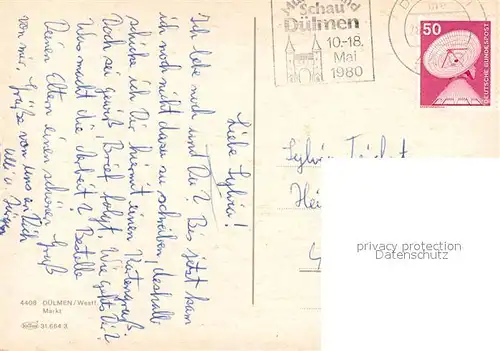 Liebe Sylvia!
Ich lebe noch und Du? Bis jetzt kam
ich noch nicht dazu zu schreiben, deshalb
schicke ich Dir hiermit einen Kartengruß.
Doch sei gewiß, Brief folgt. Wie geht's Dir?
Was macht die Arbeit? Bestelle
Deinen Eltern einen schönen Gruß
von mir. Grüße von uns an Dich
Ulli u. Jürgen
4408 DÜLMEN/Westf.
Markt
31.664 3
Schau
Dülmen
10.-18.
Mai
1980
50
DEUTSCHE BUNDESPOST
Sylvia
privacy protection
Datenschutz